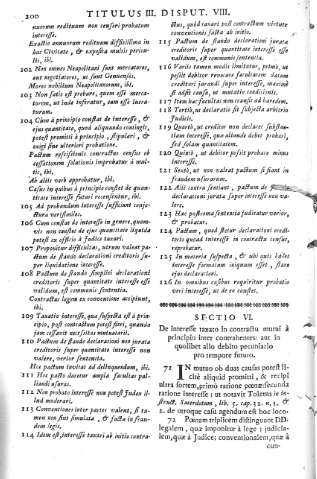 200 TITULUS III. DISPUT. VIII.
nuorum redituum non censeri probatum
interesse.
Exactio annuorum redituum difficillima in
hac Civitate, & exposita multis pericu-
lis, ibi.
102 Non omnes Neapolitani sunt mercatores,
aut negotiatores, ut sunt Genuenses.
Mores nobilium Neapolitanorum, ibi.
103 Non satis est probare, quem esse merca-
torem, ut inde inferatur, eum esse lucra-
turum.
104 Cum à principio constat de interesse, &
ejus quantitate, quod aliquando contingit,
potest promitti à principio, stipulari, &
exigi sine ulteriori probatione.
Pactum rescissionis contractus census ob
cessationem solutionis improbatur à mul-
tis, ibi.
Ab aliis verò approbatur, ibi.
Casus in quibus à principio constet de quan-
titate interesse futuri recensentur, ibi.
105 Ad probandum interesse sufficiunt conje-
cturæ verisimiles.
106 Cum constat de interesse in genere, quam-
vis non constet de ejus quantitate liquida
potest ex officio à Judice taxari.
107 Proponitur difficultas, utrum valeat pa-
ctum de standis declarationi creditoris su-
per liquidatione interesse.
108 Pactum de standis simplici declarationi
creditoris super quantitate interesse esse
validum, est communis sententia.
Contractus legem ex conventione accipiunt,
ibi.
109 Taxatio interesse, quæ suspecta est à prin-
cipio, post contractum potest fieri, quando
jam cessavit necessitas mutuatarii.
110 Pactum de standis declarationi non jurata
creditoris super quantitate interesse non
valere, verior sententia.
Hoc pactum invitat ad delinquendum, ibi.
111 Hoc pacto daretur ampla facultas pal-
liandi usuras.
112 Non probato interesse non potest Judex il-
lud moderari.
113 Conventiones inter partes valent, si ta-
men non sint simulatæ, & factæ in frau-
dem legis.
114 Idem est, interesse taxari ab initio contra-
ctus, quòd taxari post contractum virtute
conventionis factæ ab initio.
115 Pactum de standis declarationi jurata
creditoris super quantitate interesse esse
validum, est communis sententia.
116 Variis tamen modis limitatur, primò, ut
possit debitor revocare facultatem datam
creditori jurandi super interesse, maximè
si adsit causa, ut mutatio conditionis.
117 Item hæc facultas non transit ad hæredem.
118 Tertiò, ut declaratio sit subjecta arbitrio
Judicis.
119 Quartò, ut creditor non declaret substan-
tiam interesse, quæ aliunde debet probari,
sed solam quantitatem.
120 Quintò, ut debitor possit probare minus
interesse.
121 Sextò, ut non valeat pactum si fiant in
fraudem usurarum.
122 Alii contra sentiunt, pactum de
declarationi jurata super interesse non va-
lere.
123 Hæc postrema sententia judicatur verior,
& probatur.
124 Pactum, quod stetur declarationi credi-
toris quoad interesse in contractu census,
reprobatur.
125 In materia suspecta, & ubi quis solet
interesse formatum iniquum esset, stare
ejus declarationi.
126 In omnibus casibus requiritur probatio
veri interesse, ut de eo constet.
SECTIO VI.
De interesse taxato in contractu mutui à
principio inter contrahentes: aut in
quolibet alio debito pecuniario
pro tempore futuro.
71 IN mutuo ob duas causas potest li-
cité aliquid promitti, & recipi
ultra sortem, primò ratione pœnæ: secundò
ratione interesse; ut notavit Toletus in
struct. Sacerdotum, lib. 5. cap. 32. n. 1, &
2. de utroque casu agendum est hoc loco.
72 Pœnam triplicem distinguunt DD.
legalem, quæ imponitur à lege: judicia-
lem, quæ à Judice: conventionalem, quæ à
con-